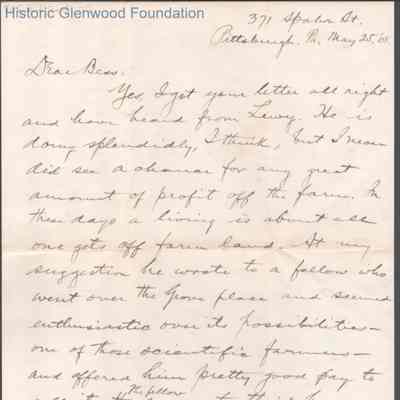 Historic Glenwood Foundation
371 Spahr St.
Pittsburgh, Pa, May 25, '08
Dear Bess.
Yes, I got your letter all right
and have heard from Lewy. He is
doing splendidly, I think, but I never
did see a chance for any great
amount of profit off the farm. In
these days a living is about all
one gets off farm land. At my
suggestion he wrote to a fellow who
went over the Grove place and seemed
enthusiastic over its possibilities—
one of those scientific farmers—
and offered him pretty good pay to
the fellow